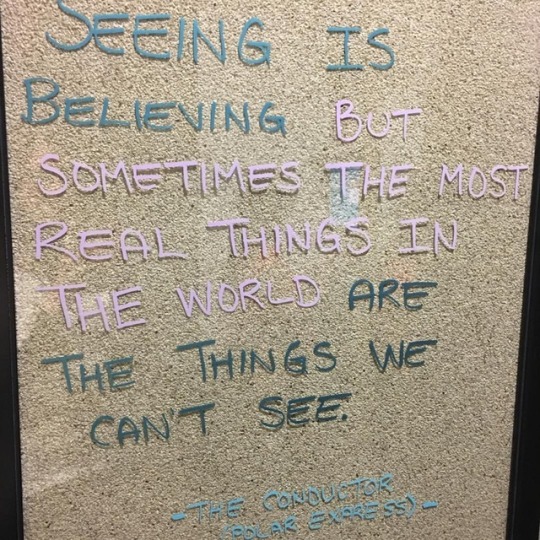 SEEING IS
BELIEVING BUT
SOMETIMES THE MOST
REAL THINGS IN
THE WORLD ARE
THE THINGS WE
CAN'T SEE.
-THE CONDUCTOR
(POLAR EXPRESS)-